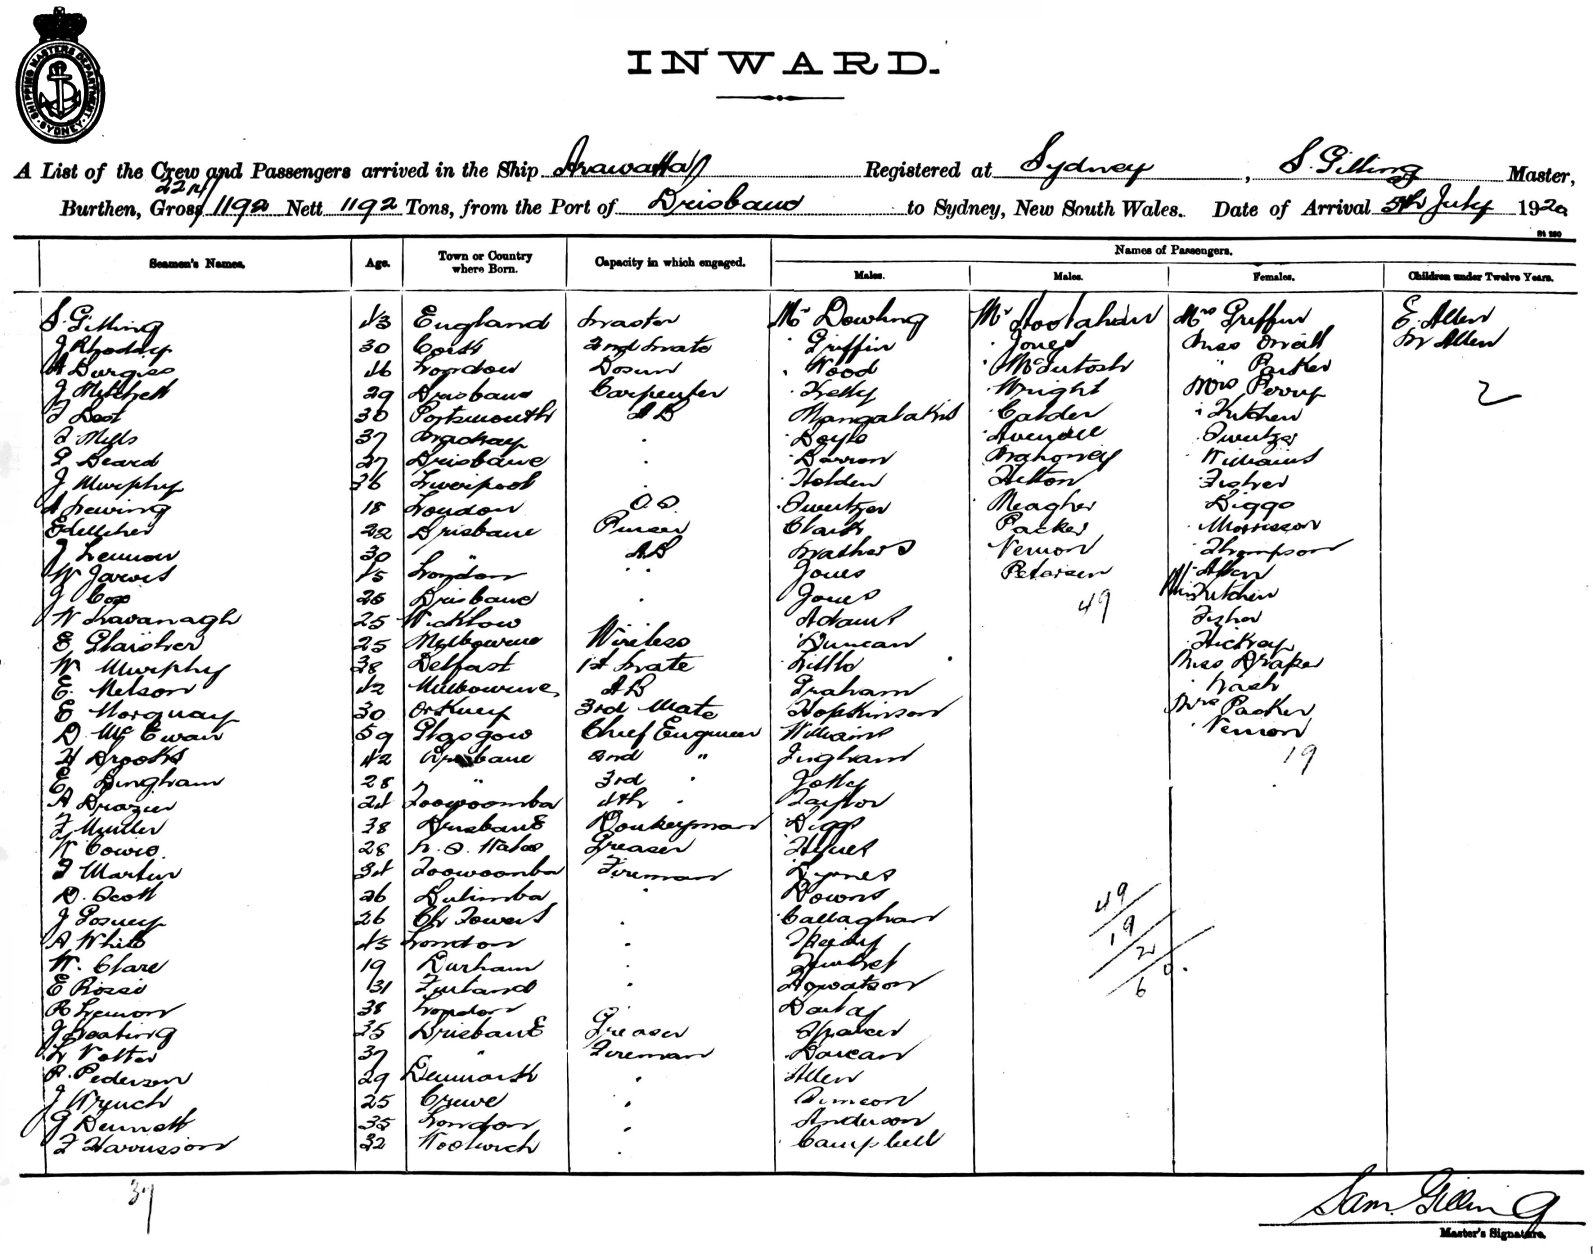 SHIPPING MASTERS DEPARTMENT. SYDNEY.
INWARD.
A List of the Crew and Passengers arrived in the Ship Arawatta Registered at Sydney, S. Gilling Master,
Burthen, Gross 1192 Nett 1192 Tons, from the Port of Brisbane to Sydney, New South Wales. Date of Arrival 5th July 1920
Seamen's Names. Age. Town or Country where Born. Capacity in which engaged. Names of Passengers.
Males. Males. Females. Children under Twelve Years.
S. Gilling 43 England Master Mr Dowling Mr Hoolahan Mrs Griffin E. Allen
J 30 Cork 2nd Mate Griffin Jones Miss Allen
A Burgiss 46 London Bosun Wood McIntosh " Parker
J Mitchell 29 Brisbane Carpenter Kelly Wright Mrs Perry 2
F Best 30 Portsmouth AB Calder Kitchen
F. Mills 37 Mackay Doyle
G Beard 27 Brisbane Barron Mahoney Williams
J Murphy 26 Liverpool Holden Hilton Fisher
A 18 London O.S. Meagher Biggs
22 Brisbane Purser Clark Packer Morrison
J Lennon 30 " AB Mathers Vernon Thompson
W Jarvis 45 London Jones Petersen
J Cox 26 Brisbane Jones 49 Kitchen
W Kavanagh 25 Wicklow Adams Fisher
E Glaisher 25 Melbourne Wireless Duncan
W Murphy 38 Belfast 1st Mate Little Miss Draper
E. Nelson 42 Melbourne AB Graham Nash
E Morquay 30 Orkney 3rd Mate Hopkinson Mrs Packer
D. McEwan 59 Glasgow Chief Engineer Williams Vernon
H Brooks 42 Brisbane 2nd " Ingham 19
E Bingham 28 " 3rd Jolly
A Brazier 24 Toowoomba 4th Taylor
F Muller 38 Brisbane Donkeyman Biggs
W Cowie. 28 N. S. Wales Greaser
F Martin 34 Toowoomba Fireman Lyones
D. Scott 26 Bulimba Downs 49
J Posney 26 Ch Towers Callaghan 19
A White 45 London 2
W. Clare 19 Durham
E Rossi 31 Finland Howatson 6
R Lemon 38 London
J Keating 35 Brisbane Greaser Spencer
37 " Fireman
P. Pederson 29 Denmark Allen
J Wrench 25 Crewe Simeon
G Bennett 35 London Anderson
F Harrisson 32 Woolwich Campbell
37
Sam. Gilling
Master's Signature.